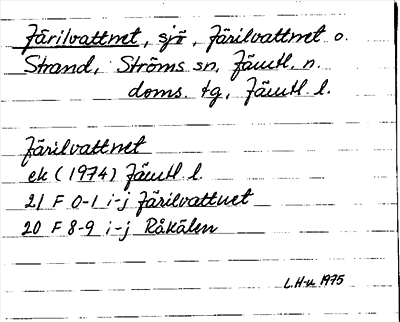 Järilvattnet, sjö, Järilvattnet o.
Strand, Ströms sn, Jämtl. n.
doms. tg, Jämtl. l.
Järilvattnet
ek (1974) Jämtl l.
21 F 0-1 i-j Järilvattnet
20 F 8-9 i-j Råkälen
L.H-m 1975